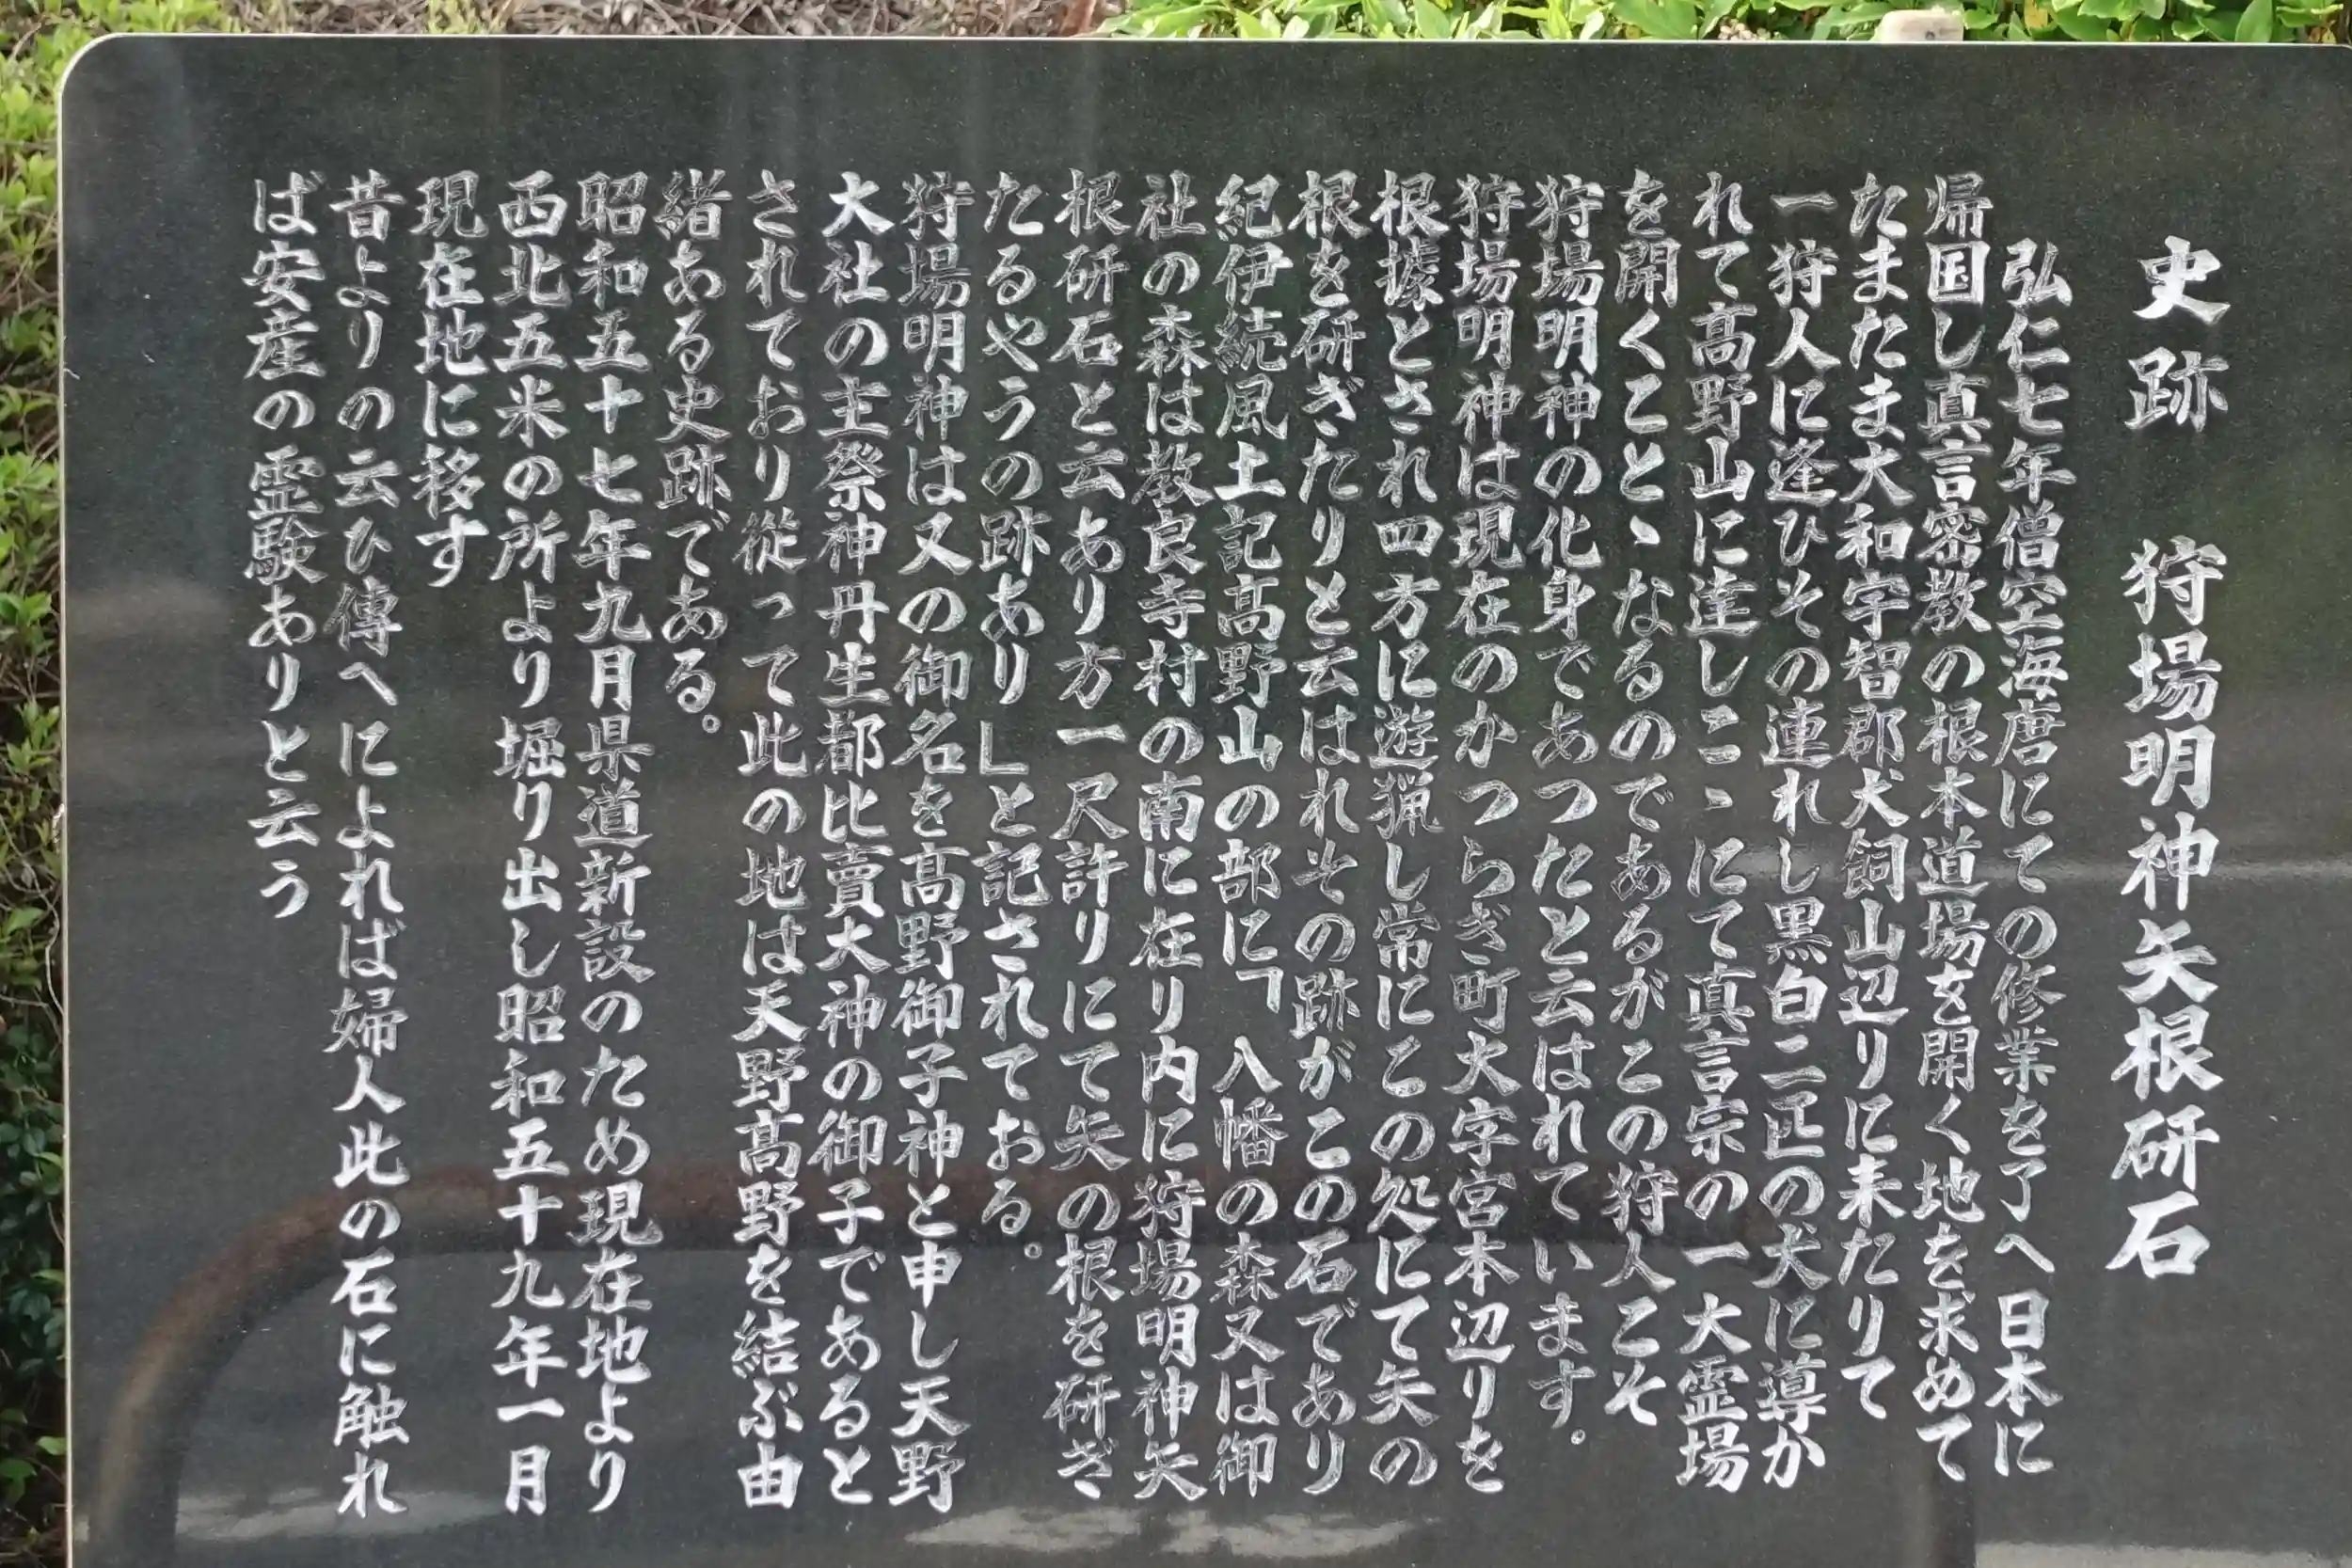 史跡　狩場明神矢根研石
弘仁七年僧空海唐にての修業を了へ日本に
帰国し真言密教の根本道場を開く地を求めて
たまたま大和宇智郡犬飼山辺りに来たりて
一狩人に逢ひその連れし黒白二匹の犬に導か
れて髙野山に達しこゝにて真言宗の一大霊場
を開くことゝなるのであるがこの狩人こそ
狩場明神の化身であつたと云はれています。
狩場明神は現在のかつらぎ町大字宮本辺りを
根據とされ四方に遊猟し常にこの処にて矢の
根を研ぎたりと云はれその跡がこの石であり
紀伊続風土記髙野山の部に「八幡の森又は御
社の森は教良寺村の南に在り内に狩場明神矢
根研石と云あり方一尺許りにて矢の根を研ぎ
たるやうの跡あり」と記されておる。
狩場明神は又の御名を髙野御子神と申し天野
大社の主祭神丹生都比賣大神の御子であると
されており従って此の地は天野髙野を結ぶ由
緒ある史跡である。
昭和五十七年九月県道新設のため現在地より
西北五米の所より堀り出し昭和五十九年一月
現在地に移す
昔よりの云ひ傳へによれば婦人此の石に触れ
ば安産の霊験ありと云う